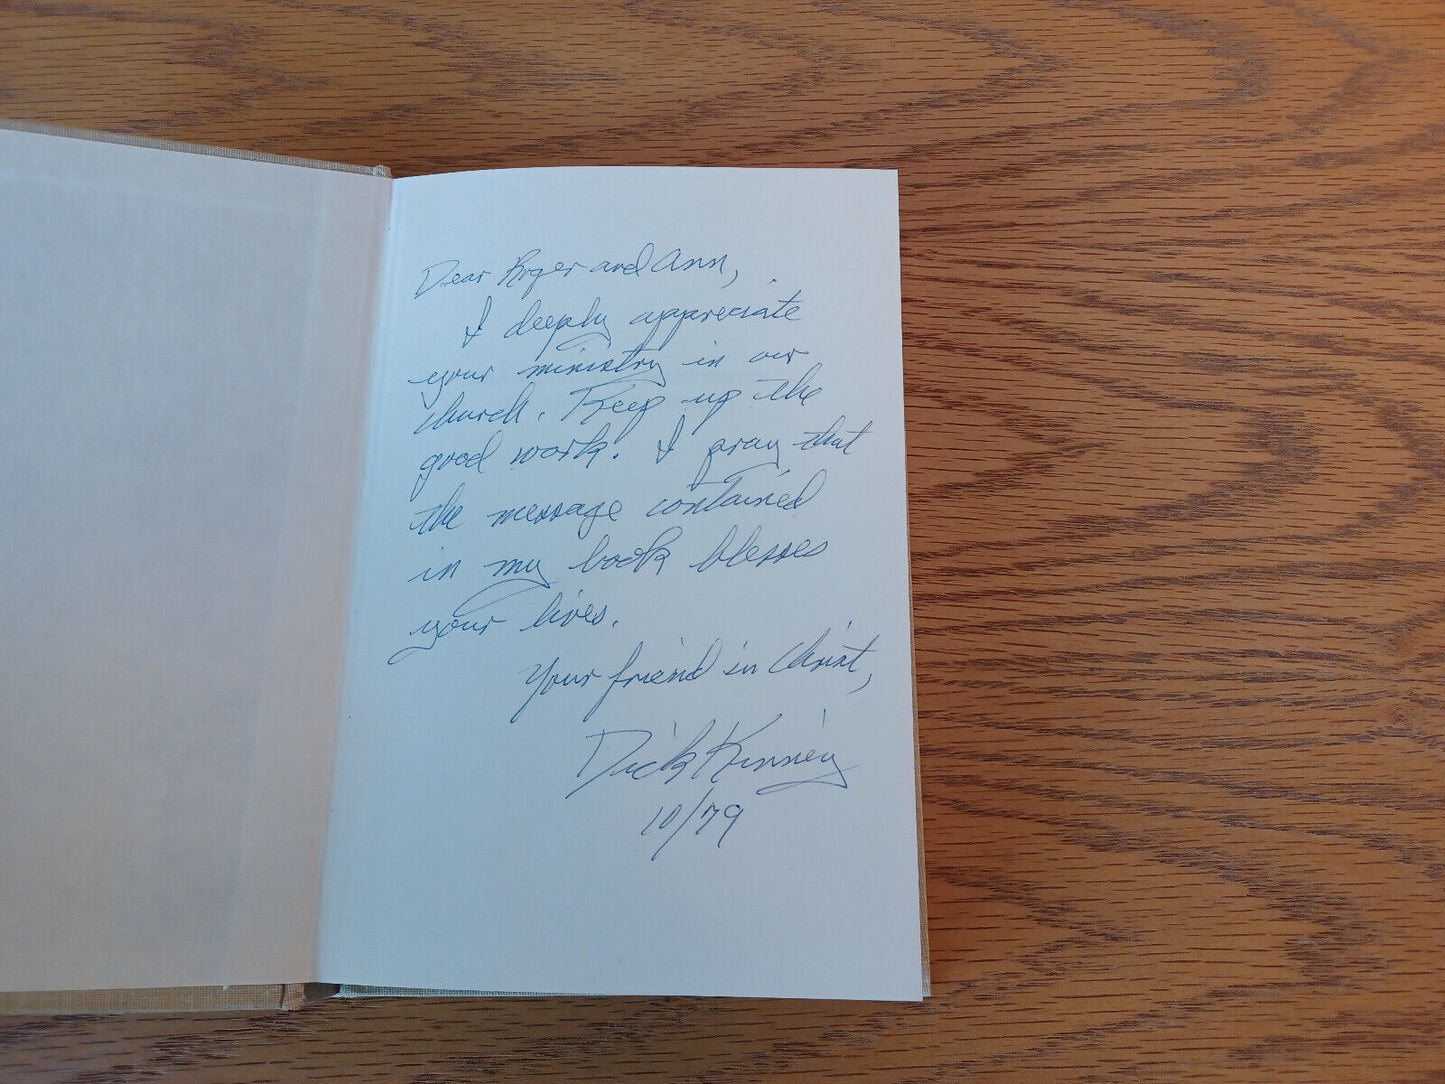 Dear Roger and Ann,
I deeply appreciate
your ministry in our
church. Keep up the
good work. I pray that
the message contained
in my book blesses
your lives.
Your friend in Christ,
Dick Kinney
10/79